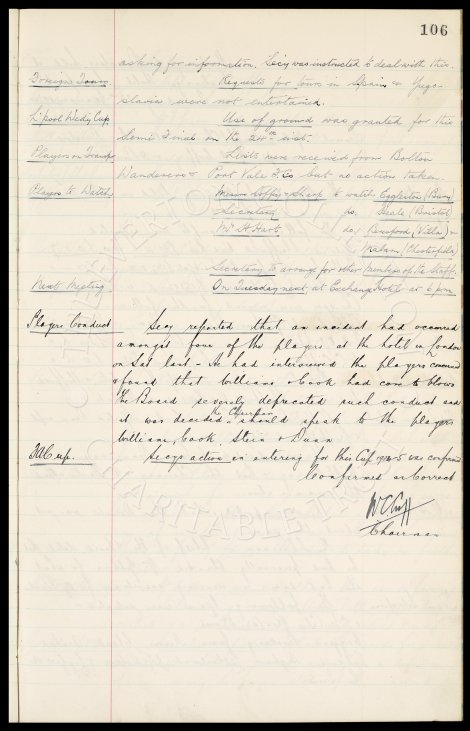 106
asking for information. Secy was instructed to deal with this.
Foreign Tours Requests for tours in Spain & Yugo-
slavia were not entertained.
L'pool Wedy Cup Use of ground was granted for this
Semi Final on the 24th inst.
Players on Transfer Lists were received from Bolton
Wanderers & Port Vale FCs but no action taken.
Players to Watch Messrs Coffey & Sharp to watch Eggleston (Bury)
Secretary do. Neale (Bristol)
Mr A Hart do. Beresford (Villa) &
(Chesterfield)
Secretary to arrange for other members of the Staff.
Next Meeting On Tuesday next at Exchange Hotel at 6 pm
Players Conduct Secy reported that an incident had occurred
amongst four of the players at the hotel in London
on Sat last - He had interviewed the players concerned
& found that Williams & Cook had come to blows
The Board severely deprecated such conduct and
it was decided the Chairman should speak to the players
Williams, Cook, Stein & Dunn
FA Cup. Secys action in entering for this Cup 1934-5 was confirmed
Confirmed as Correct
W C Cuff
Chairman
THE EVERTON COLLECTION
CHARITABLE TRUST